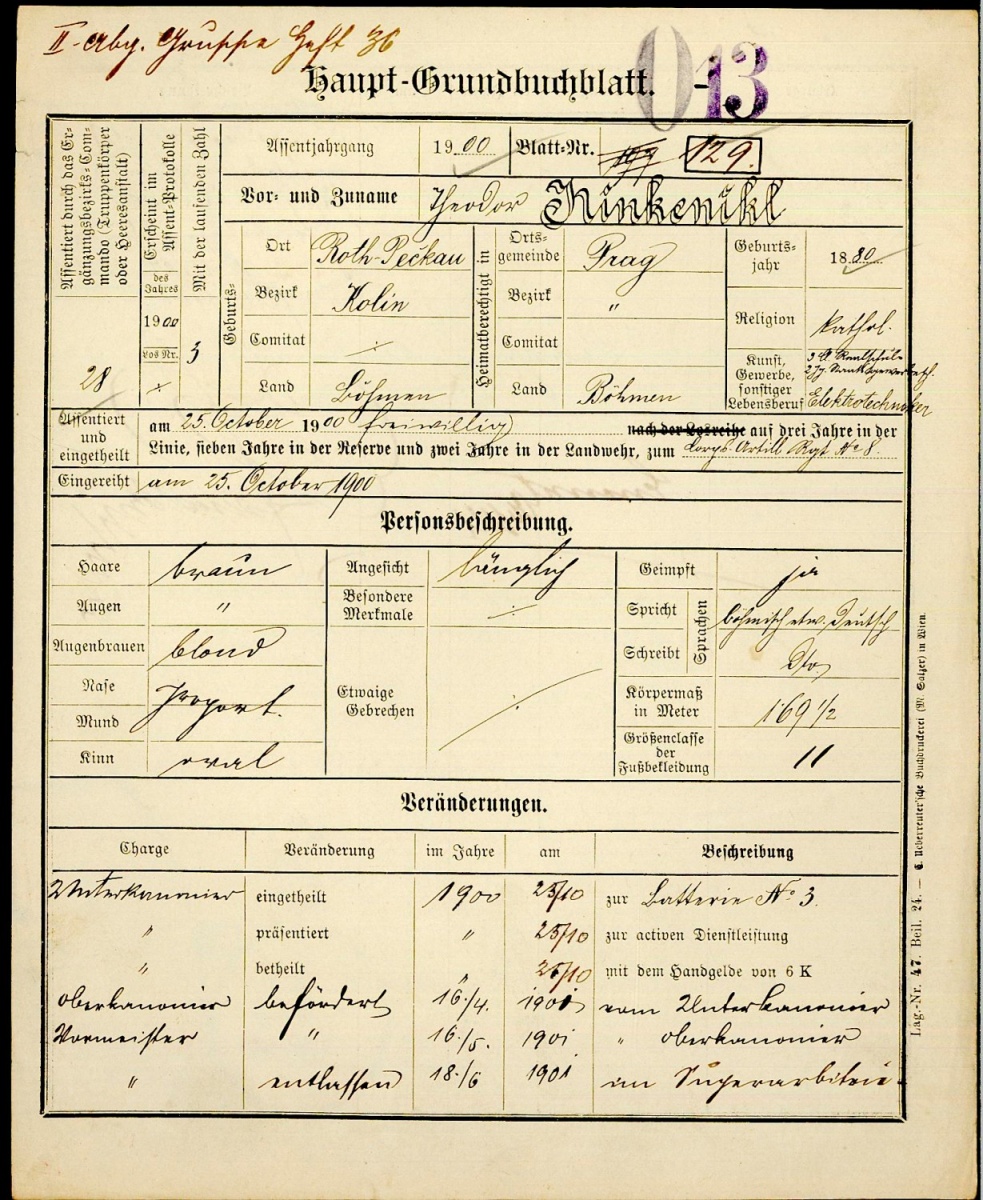 II. Abg. Gruppe Heft 36
Haupt-Grundbuchblatt.
0-13
Assentiert durch das Ergänzungsbezirks-Commando (Truppenkörper oder Heeresanstalt)
28
Erscheint im Assent-Protokolle
des Jahres
1900
Los Nr.
Mit der laufenden Zahl
3
Assentjahrgang 1900 Blatt-Nr. 129.
Vor- und Zuname Theodor Kinkenikl
Geburts-
Ort Roth-Pečkau
Bezirk Kolin
Comitat ·/·
Land Böhmen
Heimatberechtigt in
Ortsgemeinde Prag
Bezirk "
Comitat
Land Böhmen
Geburtsjahr 1880
Religion kathol.
Kunst, Gewerbe, sonstiger Lebensberuf
3 Realschule
Elektrotechniker
Assentiert und eingetheilt
am 25. October 1900 freiwillig) nach der Losreihe auf drei Jahre in der
Linie, sieben Jahre in der Reserve und zwei Jahre in der Landwehr, zum Corps. Artill Rgt No 8.
Eingereiht am 25. October 1900
Personsbeschreibung.
Haare braun
Augen "
Augenbrauen blond
Nase
Mund
proport.
Kinn oval
Angesicht länglich
Besondere Merkmale ·/·
Etwaige Gebrechen ·/·
Geimpft ja
Spricht
Schreibt
Sprachen
böhmisch etw. deutsch
dto
Körpermaß in Meter 169 1/2
Größenclasse der Fußbekleidung 11
Veränderungen.
Charge Veränderung im Jahre am Beschreibung
Unterkanonier eingetheilt 1900 25/10 zur Batterie No 3.
" präsentiert " 25/10 zur activen Dienstleistung
" betheilt " 25/10 mit dem Handgelde von 6 K
Oberkanonier befördert 16./4. 1901 vom Unterkanonier
Vormeister " 16./5. 1901 " Oberkanonier
" entlassen 18./6 1901 im Superarbitrie-
Lag.-Nr. 47. Beil. 24. — C. Ueberreuter'sche Buchdruckerei (M. Salzer) in Wien.